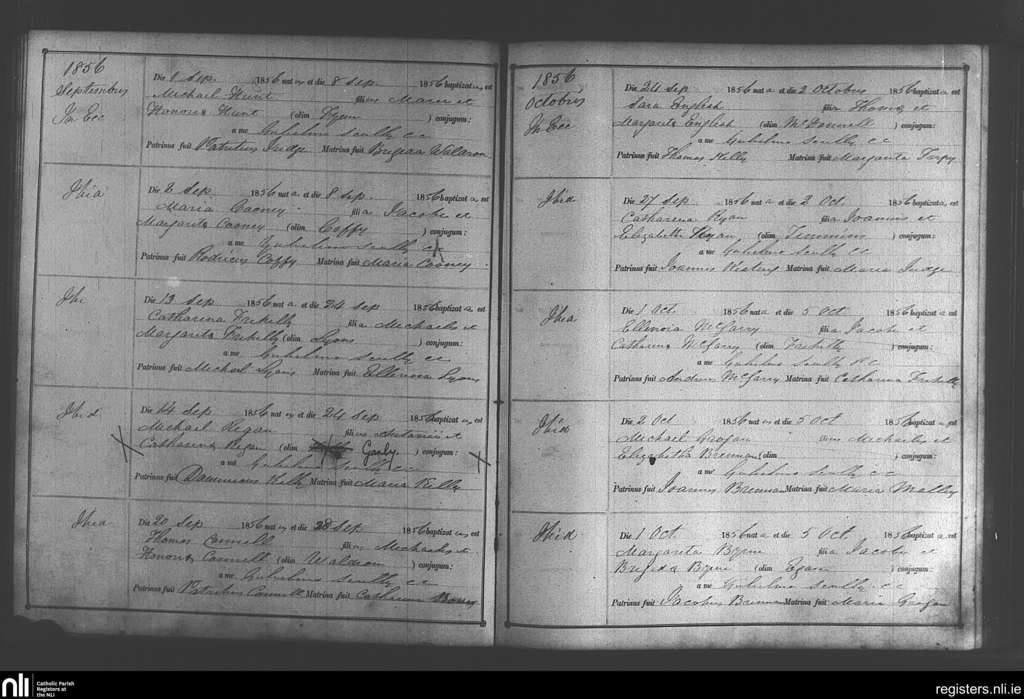 1856
Septembris
In Ecc
Die 1 Sep 1856 natus et die 8 Sep 1856 baptizatus est
Michael Hunt filius Marci et
Honorae Hunt (olim Flynn) conjugum:
a me Gulielmo Scully cc
Patrinus fuit Patritius Judge Matrina fuit Brigida Waldron
Ibid
Die 2 Sep 1856 nata et die 8 Sep 1856 baptizata est
Maria Cooney filia Jacobi et
Margarita Cooney (olim Coffy) conjugum:
a me Gulielmo Scully cc
Patrinus fuit Rodricus Coffy Matrina fuit Maria Cooney
Ibi
Die 13 Sep 1856 nata et die 24 Sep 1856 baptizata est
Catharina filia Michaelis et
Margarita (olim Lyons) conjugum:
a me Gulielmo Scully cc
Patrinus fuit Michael Lyons Matrina fuit Ellenora Lyons
Ibid
Die 14 Sep 1856 natus et die 24 Sep 1856 baptizatus est
Michael Regan filius et
Catharina Regan (olim Ganly) conjugum:
a me Gulielmo Scully cc
Patrinus fuit Dominicus Kelly Matrina fuit Maria Kelly
Ibid
Die 20 Sep 1856 natus et die 28 Sep 1856 baptizatus est
Thomas Connell filius Michaelis et
Honora Connell (olim Waldron) conjugum:
a me Gulielmo Scully cc
Patrinus fuit Patritius Connell Matrina fuit Catharina
1856
Octobris
In Ecc
Die 24 Sep 1856 nata et die 2 Octobris 1856 baptizata est
Sara English filia Thoma et
Margarita English (olim McDonnell) conjugum:
a me Gulielmo Scully cc
Patrinus fuit Thomas Kelly Matrina fuit Margarita Tarpy
Ibid
Die 27 Sep 1856 nata et die 2 Oct 1856 baptizata est
Catharina Ryan filia Joannis et
Elizabeth Ryan (olim Timmins) conjugum:
a me Gulielmo Scully cc
Patrinus fuit Joannes Matrina fuit Maria Judge
Ibid
Die 1 Oct 1856 nata et die 5 Oct 1856 baptizata est
Ellenora McGarry filia Jacobi et
Catharina McGarry (olim) conjugum:
a me Gulielmo Scully cc
Patrinus fuit Andreas McGarry Matrina fuit Catharina
Ibid
Die 2 Oct 1856 natus et die 5 Oct 1856 baptizatus est
Michael Grogan filius Michaelis et
Elizabetha Brennan (olim ) conjugum:
a me Gulielmo Scully cc
Patrinus fuit Joannes Brennan Matrina fuit Maria Malley
Ibid
Die 1 Oct 1856 nata et die 5 Oct 1856 baptizata est
Margarita Byrne filia Jacobi et
Brigida Byrne (olim Egan) conjugum:
a me Gulielmo Scully cc
Patrinus fuit Jacobus Brennan Matrina fuit Maria Grogan
nli
Catholic Parish
Registers at
the NLI
registers.nli.ie